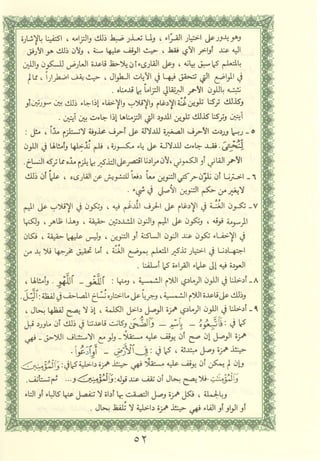 وهو يدور على اختيار القرّاء، ولما تعذر ضبط ذلك والتزامه، اكتفينا بالإشارة
إليه عند أواخر الآي فقط، حيث الوقف عليها سنة، ولأن ذلك هو الأرفق
بالمتعلم كما سبق بيانه، وعلى القارىء أن يلاحظ قاعدة العارض للسكون واللين
في المواضع التي تتحقق فيها في الآيات الطوال، حيث يقف اضطراراً، مما لم
نشته باللون الأحمر البرتقالي التزاماً بما قدمناه.
وكذلك تركنا تلوين غنة الإدغام والإقلاب والإخفاء إذا جاء ذلك بين سورتين أو
آيتين وتركنا كذلك تلوين المدود التي التزمناها إذا جاءت بين آيتين.
٥ـ ربما وردت الأحرف الصغيرة للدلالة على أحرف محذوفة لا تستلزم مداً، مثل:
فقد جاءت للدلالة على ياء مكسورة، فلم ندخلها وأمثالها في اللون
الأحمر القاني أو الكموني، لأن مرادنا اقتصر على التذكير بما يلزم مده مما تركه النساخ.
٦ـ احترنا أن نلوّن حركتي التنوين معاً دفعاً للتشويش عن القارىء، علماً أن ذلك
لا يغير من حكم التنوين الأصلي في شيء.
٧ـ تكون الغنّة في الإدغام على الحرف المدغم فيه، وتكون في الإقلاب على الميم
المرسومة فوقه، وتكون على الميم والنون المشددتين حقيقة، وهذا ظاهر، ولكنها
في الإخفاء تكون عند النون الساكنة أو التنوين، وليس عليهما حقيقة، فكان
اجتهادنا في اختيار تذكير المتعلم بموضع الغنّة، أما تحقيق مخرجها فلا بد من
العودة فيه إلى علماء القراءة كما أسلفنا.
٨ـ أدخلنا في اللون الرمادي اللام الشمسية، ومنها: اللغو ـ اللهو. وأمثالها،
وذلك على قاعدة اللام الشمسية، وجرياً على ما اختاره نسّاخ المصاحف في لفظة: اليل.
٩ـ أدخلنا في اللون الرمادي همزة الوصل داخل الكلمة، إذ لا يصح لفظها بحال،
كما في: فاسعوا ـ باسم ـ والضحى وكانت قاعدتنا في ذلك أن ماورد قبل
همزة الوصل إن صح أن يوقف عليه مستقلاً ـ ولو مع الاستئناف اللاحق ـ فهي
حينئذ همزة وصل مبتدئة، كما في: في الأرض ـ أو ادعوا.
وإن لم يمكن أن يوقف عليه مستقلاً فهي حينئذ همزة داخلية كما في: والمؤمنين
والمؤمنت فلا يصح بحال أن تقف عند قوله: والمؤمنين و... ثم تستأنف.
وبالجملة، فكل همزة وصل التصقت بما أداة لا تنفصل عنها كالباء أو التاء
أو الواو أو الفاء فهي حينئذ همزة داخلية لا تلفظ بحال.
٥٢